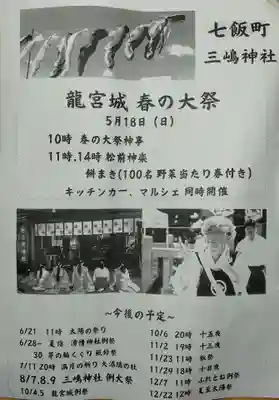 七飯町
三嶋神社
龍宮城 春の大祭
5月18日（日）
10時 春の大祭神事
11時、14時 松前神楽
餅まき(100名 野菜当たり券付き)
キッチンカー、マルシェ 同時開催
～今後の予定～
6/21 11時 太陽の祭り
6/28～ 夏詣 清悟神社例祭
30 茅の輪くぐり 祇鈴祭
7/11 20時 満月の祈り 大湯壇の社
8/7.8.9 三嶋神社 例大祭
10/4.5 龍宮城例祭
10/6 20時 十五夜
11/2 19時 十三夜
11/23 11時 秋祭
11/29 18時 十日夜
12/7 11時 ふれとお例祭
12/22 12時 夏至太陽祭